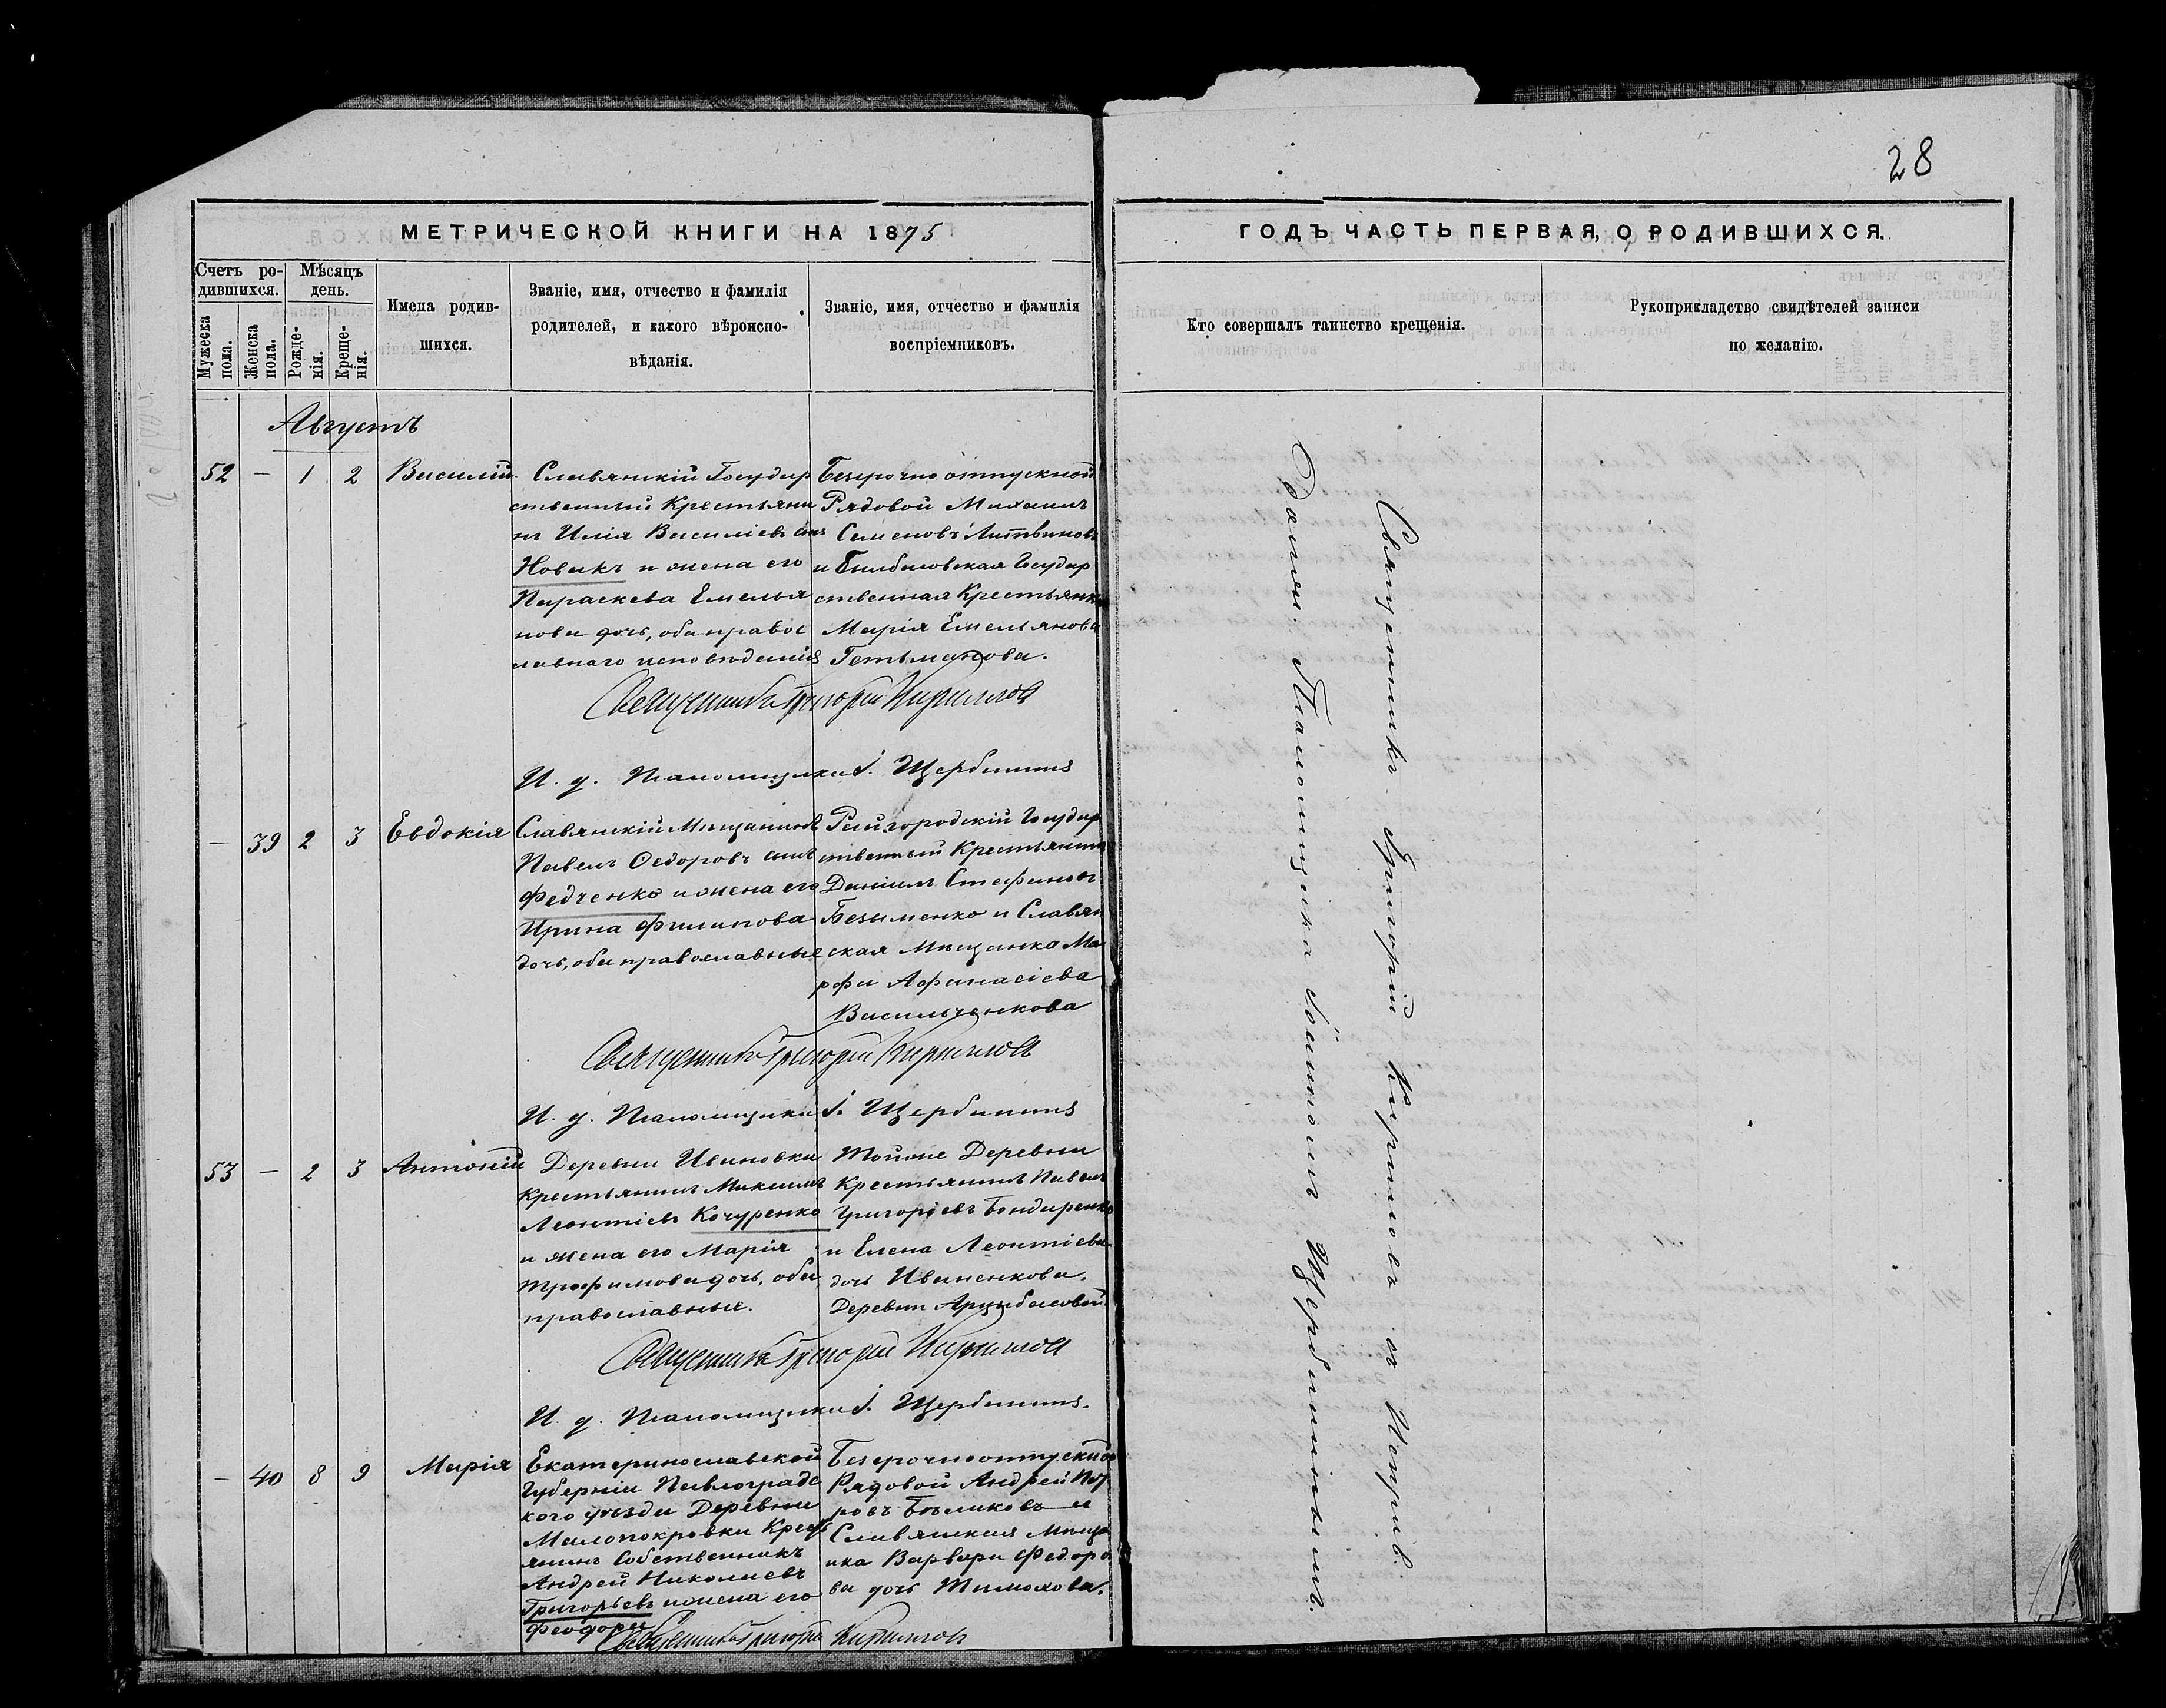 28
МЕТРИЧЕСКОЙ КНИГИ НА 1875
ГОДЪ ЧАСТЬ ПЕРВАЯ, О РОДИВШИХСЯ.
Счетъ ро-
дившихся.
Мѣсяцъ
день.
Мужеска
пола.
Женска
пола.
Рожде-
нія.
Креще-
нія.
Имена родив-
шихся.
Званіе, имя, отчество и фамилія
родителей, и какого вѣроиспо-
вѣданія.
Званіе, имя, отчество и фамилія
воспріемниковъ.
Кто совершалъ таинство крещенія.
Рукоприкладство свидѣтелей записи
по желанію.
Августъ
52 — 1 2 Василій
Славянскій Государ
ственный Крестьяни
нъ Илія Василіевъ сынъ
Новакъ и жена его
Параскева Емелья
нова дочь, оба правос
лавнаго исповѣданія
Безсрочно отпускной
Рядовой Михаилъ
Семеновъ Литвиновъ
и Былбасовская Государ
ственная Крестьянка
Марія Емельянова
Гетьманова.
Священникъ Григорій Кирилловъ
И. д. Псаломщика І. Щербининъ
— 39 2 3 Евдокія
Славянскій Мѣщанинъ
Павелъ Ѳедоровъ сынъ
Федченко и жена его
Ирина Филипова
дочь, оба православные
Райгородскій Государ
ственный Крестьянинъ
Даніилъ Стефановъ
Безыменко и Славян
ская Мѣщанка Ма
рфа Афанасіева
Васильченкова
Священникъ Григорій Кирилловъ
И. д. Псаломщика І. Щербининъ
53 — 2 3 Антоній
Деревни Ивановки
Крестьянинъ Максимъ
Леонтіевъ Кочуренко
и жена его Марія
Трофимова дочь, оба
православные.
Тойже Деревни
Крестьянинъ Павелъ
Григоріевъ Бондаренко
и Елена Леонтіева
дочь Иваненкова.
Деревни Арцыбасовой
Священникъ Григорій Кирилловъ
И. д. Псаломщика І. Щербининъ.
— 40 8 9 Марія
Екатеринославской
Губерніи Павлоградс
кого уѣзда Деревни
Малопокровки Крест
янинъ Собственникъ
Андрей Николаевъ
Григорьевъ и жена его
Феодора
Безсрочноотпускной
Рядовой Андрей Пет
ровъ Бѣликовъ и
Славянская Мѣща
нка Варвара Федоро
ва дочь Тимохова.
Священникъ Григорій Кирилловъ
Священникъ Григорій Кирилловъ съ Исправ.
Должн. Псаломщика Іоанномъ Щербининымъ.